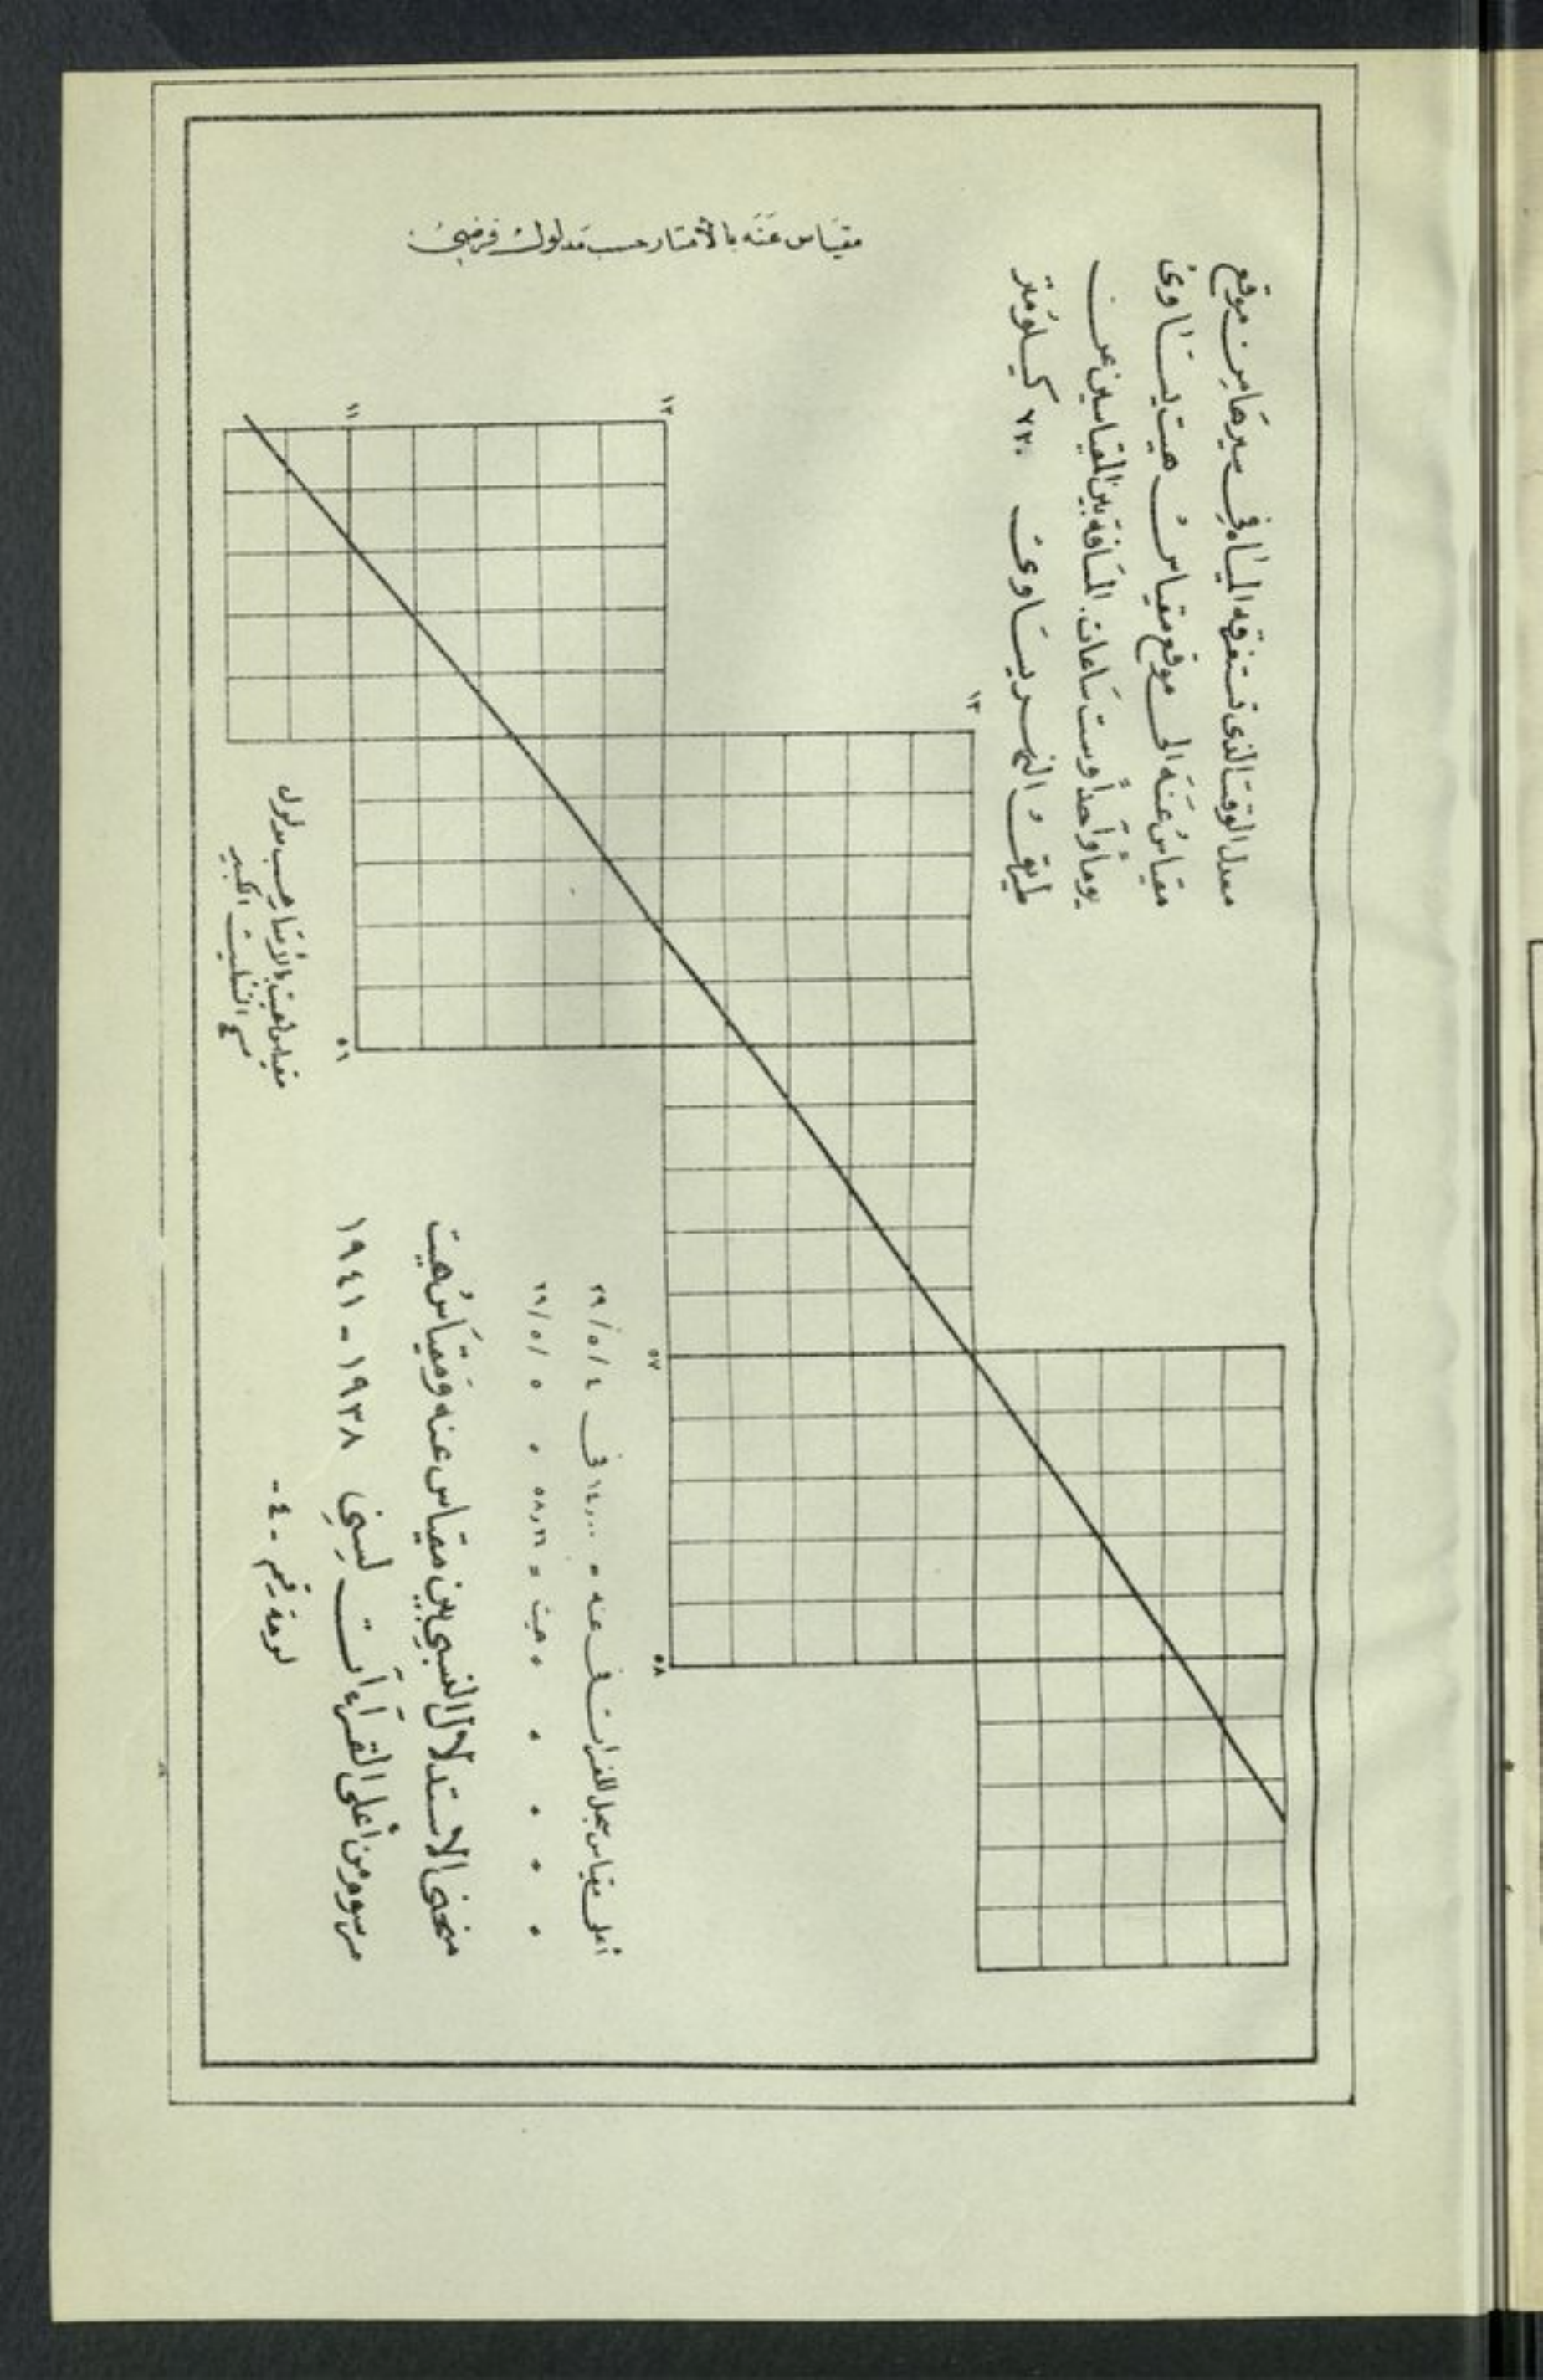 معدل الوقت الذي تستغرقه المياه في سيرها من موقع
مقياس عنه الى موقع مقياس هيت يساوي
يوماً واحداً وست ساعات. المسافة بين المقياسين عن
طريق النهر يساوي كيلومتر
مقياس عنه بالأمتار حسب مدلول فرضي
١١
١٢
١٣
مقياس هيت بالأمتار حسب مدلول
مسح التثليث الكبير
٥٦
٥٧
٥٨
أعلى مقياس سجل للفرات في عنه = ١٤٫٠٠ في ٤ / ٥ / ٢٩
" " " " " هيت = " ٥ / ٥ / ٢٩
منحنى الاستدلال النسبي بين مقياس عنه ومقياس هيت
مرسوم من أعلى القراءات لسني ١٩٣٨ - ١٩٤١
لوحة رقم - ٤ -